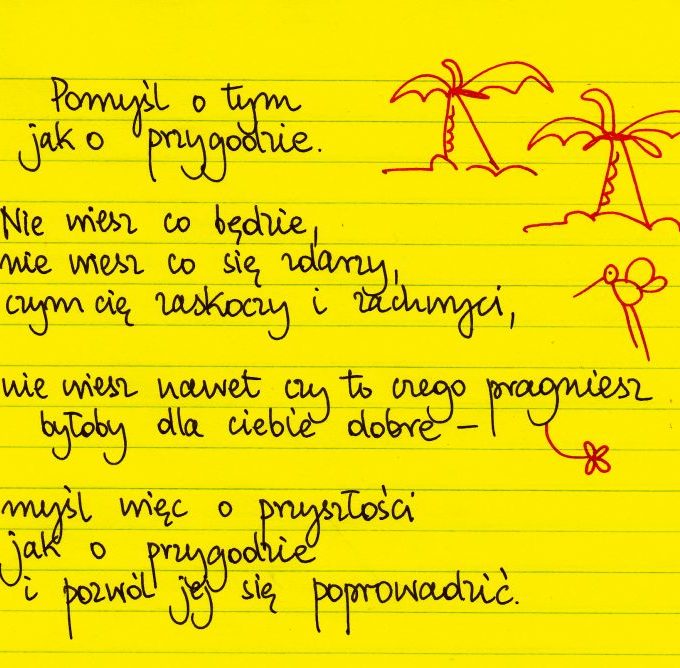 Pomyśl o tym
jak o przygodzie.
Nie wiesz co będzie,
nie wiesz co się zdarzy,
czym cię zaskoczy i zachwyci,
nie wiesz nawet czy to czego pragniesz
byłoby dla ciebie dobre –
myśl więc o przyszłości
jak o przygodzie
i pozwól jej się poprowadzić.